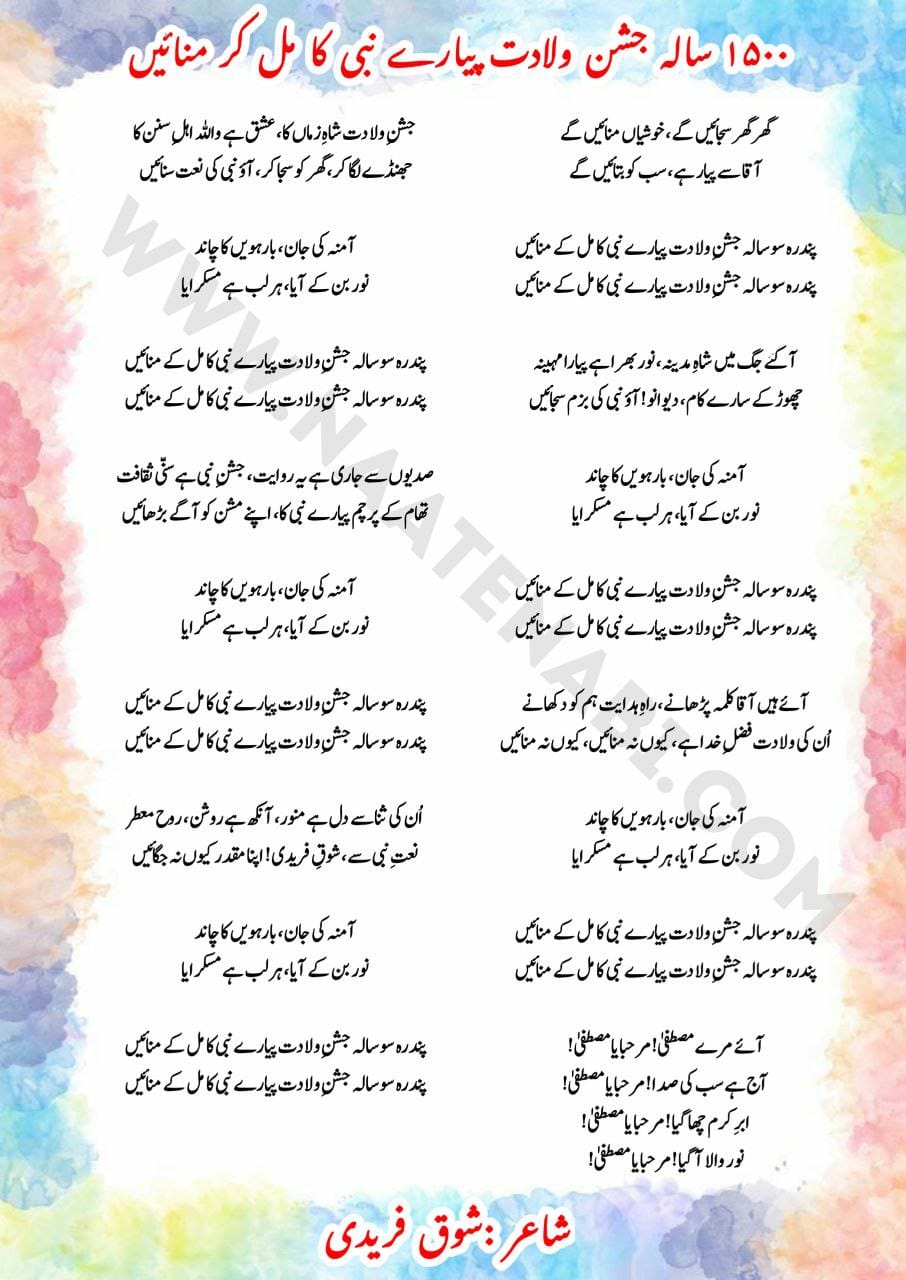 ۱۵۰۰ سالہ جشن ولادت پیارے نبی کا مل کر منائیں
گھر گھر سجائیں گے، خوشیاں منائیں گے
آقا سے پیار ہے، سب کو بتائیں گے
جشنِ ولادت شاہِ زماں کا، عشق ہے واللہ اہلِ سنن کا
جھنڈے لگا کر، گھر کو سجا کر، آؤ نبی کی نعت سنائیں
پندرہ سو سالہ جشنِ ولادت پیارے نبی کا مل کے منائیں
پندرہ سو سالہ جشنِ ولادت پیارے نبی کا مل کے منائیں
آمنہ کی جان، بارہویں کا چاند
نور بن کے آیا، ہر لب ہے مسکرایا
آ گئے جگ میں شاہِ مدینہ، نور بھرا ہے پیارا مہینہ
چھوڑ کے سارے کام، دیوانو! آؤ نبی کی بزم سجائیں
پندرہ سو سالہ جشنِ ولادت پیارے نبی کا مل کے منائیں
پندرہ سو سالہ جشنِ ولادت پیارے نبی کا مل کے منائیں
آمنہ کی جان، بارہویں کا چاند
نور بن کے آیا، ہر لب ہے مسکرایا
صدیوں سے جاری ہے یہ روایت، جشنِ نبی ہے سنّی ثقافت
تھام کے پرچم پیارے نبی کا، اپنے مشن کو آگے بڑھائیں
پندرہ سو سالہ جشنِ ولادت پیارے نبی کا مل کے منائیں
پندرہ سو سالہ جشنِ ولادت پیارے نبی کا مل کے منائیں
آمنہ کی جان، بارہویں کا چاند
نور بن کے آیا، ہر لب ہے مسکرایا
آئے ہیں آقا کلمہ پڑھانے، راہِ ہدایت ہم کو دکھانے
اُن کی ولادت فضلِ خدا ہے، کیوں نہ منائیں، کیوں نہ منائیں
پندرہ سو سالہ جشنِ ولادت پیارے نبی کا مل کے منائیں
پندرہ سو سالہ جشنِ ولادت پیارے نبی کا مل کے منائیں
آمنہ کی جان، بارہویں کا چاند
نور بن کے آیا، ہر لب ہے مسکرایا
اُن کی ثنا سے دل ہے منور، آنکھ ہے روشن، روح معطر
نعتِ نبی سے، شوقِ فریدی! اپنا مقدر کیوں نہ جگائیں
پندرہ سو سالہ جشنِ ولادت پیارے نبی کا مل کے منائیں
پندرہ سو سالہ جشنِ ولادت پیارے نبی کا مل کے منائیں
آمنہ کی جان، بارہویں کا چاند
نور بن کے آیا، ہر لب ہے مسکرایا
آئے مرے مصطفیٰ! مرحبا یا مصطفیٰ!
آج ہے سب کی صدا! مرحبا یا مصطفیٰ!
ابرِ کرم چھا گیا! مرحبا یا مصطفیٰ!
نور والا آ گیا! مرحبا یا مصطفیٰ!
پندرہ سو سالہ جشنِ ولادت پیارے نبی کا مل کے منائیں
پندرہ سو سالہ جشنِ ولادت پیارے نبی کا مل کے منائیں
شاعر : شوق فریدی
WWW.NAATENABI.COM